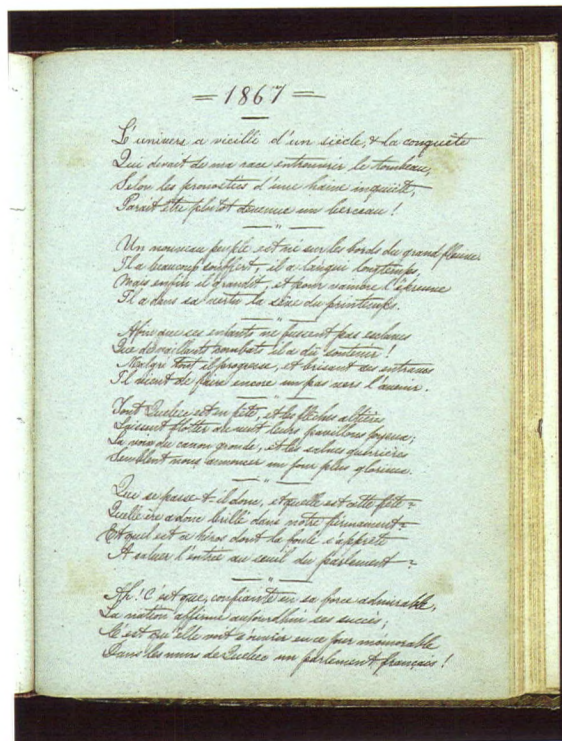 = 1867 =
L'univers a vieilli d'un siècle, & la conquête
Qui devait de ma race entrouvrir le tombeau,
Selon les pronostics d'une haine inquiète,
Paraît être plutôt devenue un berceau !
Un nouveau peuple est né sur les bords du grand fleuve
Il a beaucoup souffert, il a langui longtemps,
Mais enfin il grandit, et pour vaincre l'épreuve
Il a dans sa vertu la sève du printemps.
Afin que ses enfants ne fussent pas esclaves
Que de vaillants combats il a dû soutenir !
Malgré tout il progresse, et brisant ses entraves
Il vient de faire encore un pas vers l'avenir.
Tout Québec est en fête, et les flèches altières
Laissent flotter au vent leurs pavillons joyeux ;
La voix du canon gronde, et les salves guerrières
Semblent nous annoncer un jour plus glorieux.
Que se passe-t-il donc, et quelle est cette fête ?
Quelle ère a donc brillé dans notre firmament ?
Et quel est ce héros dont la foule s'apprête
A saluer l'entrée au seuil du parlement ?
Ah ! C'est que, confiante en sa force admirable,
La nation affirme aujourd'hui ses succès ;
C'est qu'elle voit s'ouvrir en ce jour mémorable
Dans les murs de Québec un parlement français !